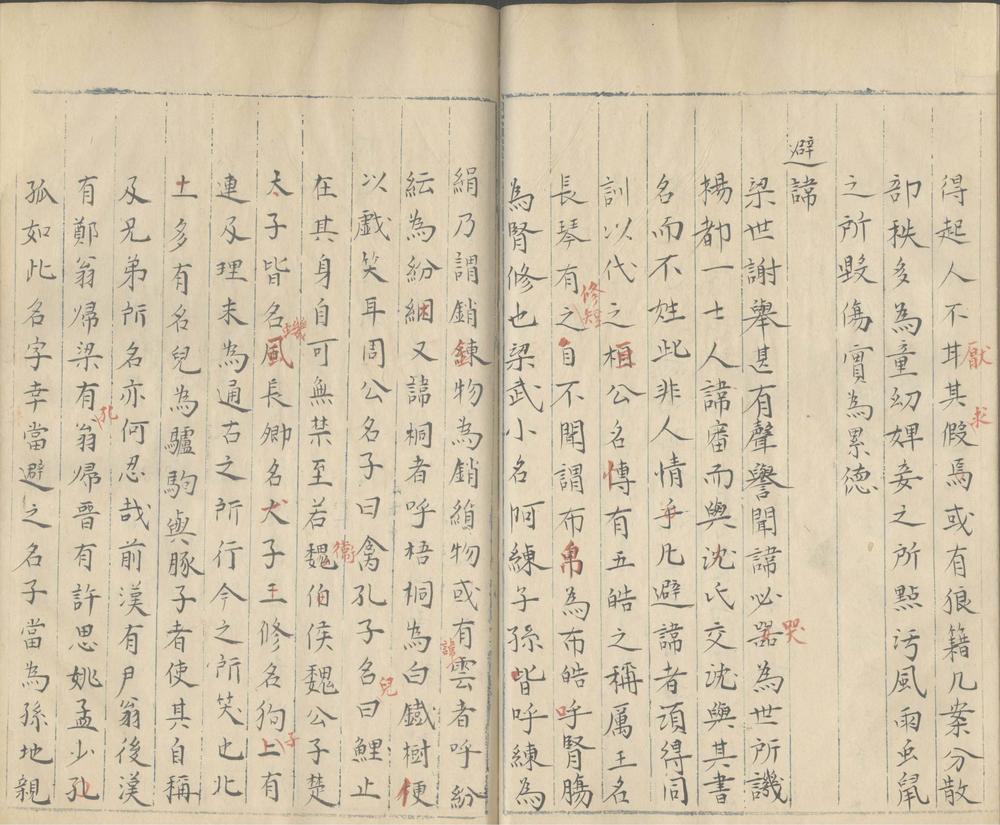 得起人不甘其假焉或有狼籍几案分散
部秩多為童幼婢妾之所點污風雨虫鼠
之所毀傷實為累德
避諱
梁世謝舉甚有聲譽聞諱必器為世所譏
揚都一士人諱審而與沈氏交沈與其書
名而不姓此非人情乎凡避諱者須得同
訓以代之桓公名博有五皓之稱厲王名
長琴有之自不聞謂布帛為布皓呼腎腸
為腎修也梁武小名阿練子孫皆呼練為
絹乃謂銷鍊物為銷絹物或有雲者呼紛
紜為紛絪又諱桐者呼梧桐為白鐵樹便
以戲笑耳周公名子曰禽孔子名曰鯉止
在其身自可無禁至若魏伯侯魏公子楚
太子皆名風長卿名犬子王修名狗上有
連及理未為通古之所行今之所笑也北
土多有名兒為驢駒與豚子者使其自稱
及兄弟所名亦何忍哉前漢有尹翁後漢
有鄭翁帰梁有翁帰晋有許思妣孟少孔
孤如此名字幸當避之名子當為孫地親
厭
求
哭
修短
諱
兒
衞
蟣
子
孔